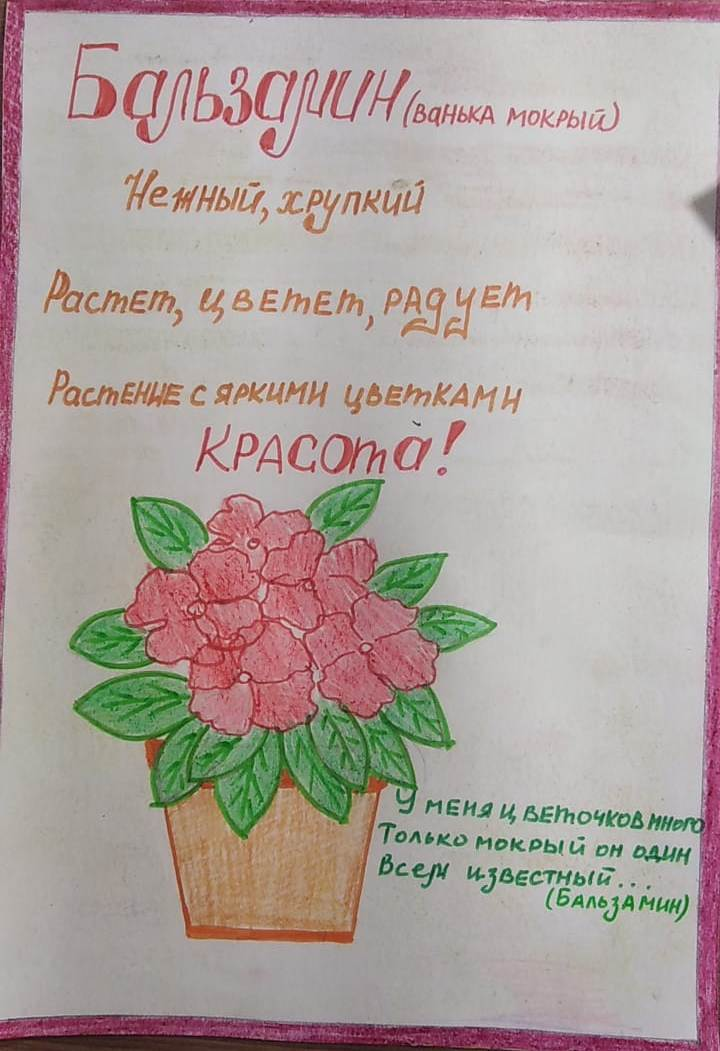 Бальзамин (ванька мокрый)
Нежный, хрупкий
Растет, цветет, радует
Растение с яркими цветками
Красота!
У меня цветочков много
Только мокрый он один
Всем известный...
(Бальзамин)